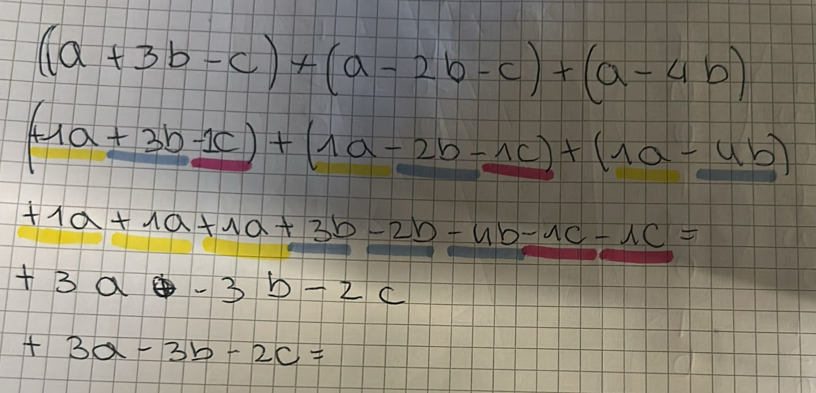 (a + 3b - c) + (a - 2b - c) + (a - 4b)
(+1a + 3b - 1c) + (1a - 2b - 1c) + (1a - 4b)
+1a + 1a + 1a + 3b - 2b - 4b - 1c - 1c =
+ 3 a - 3 b - 2 c
+ 3a - 3b - 2c =